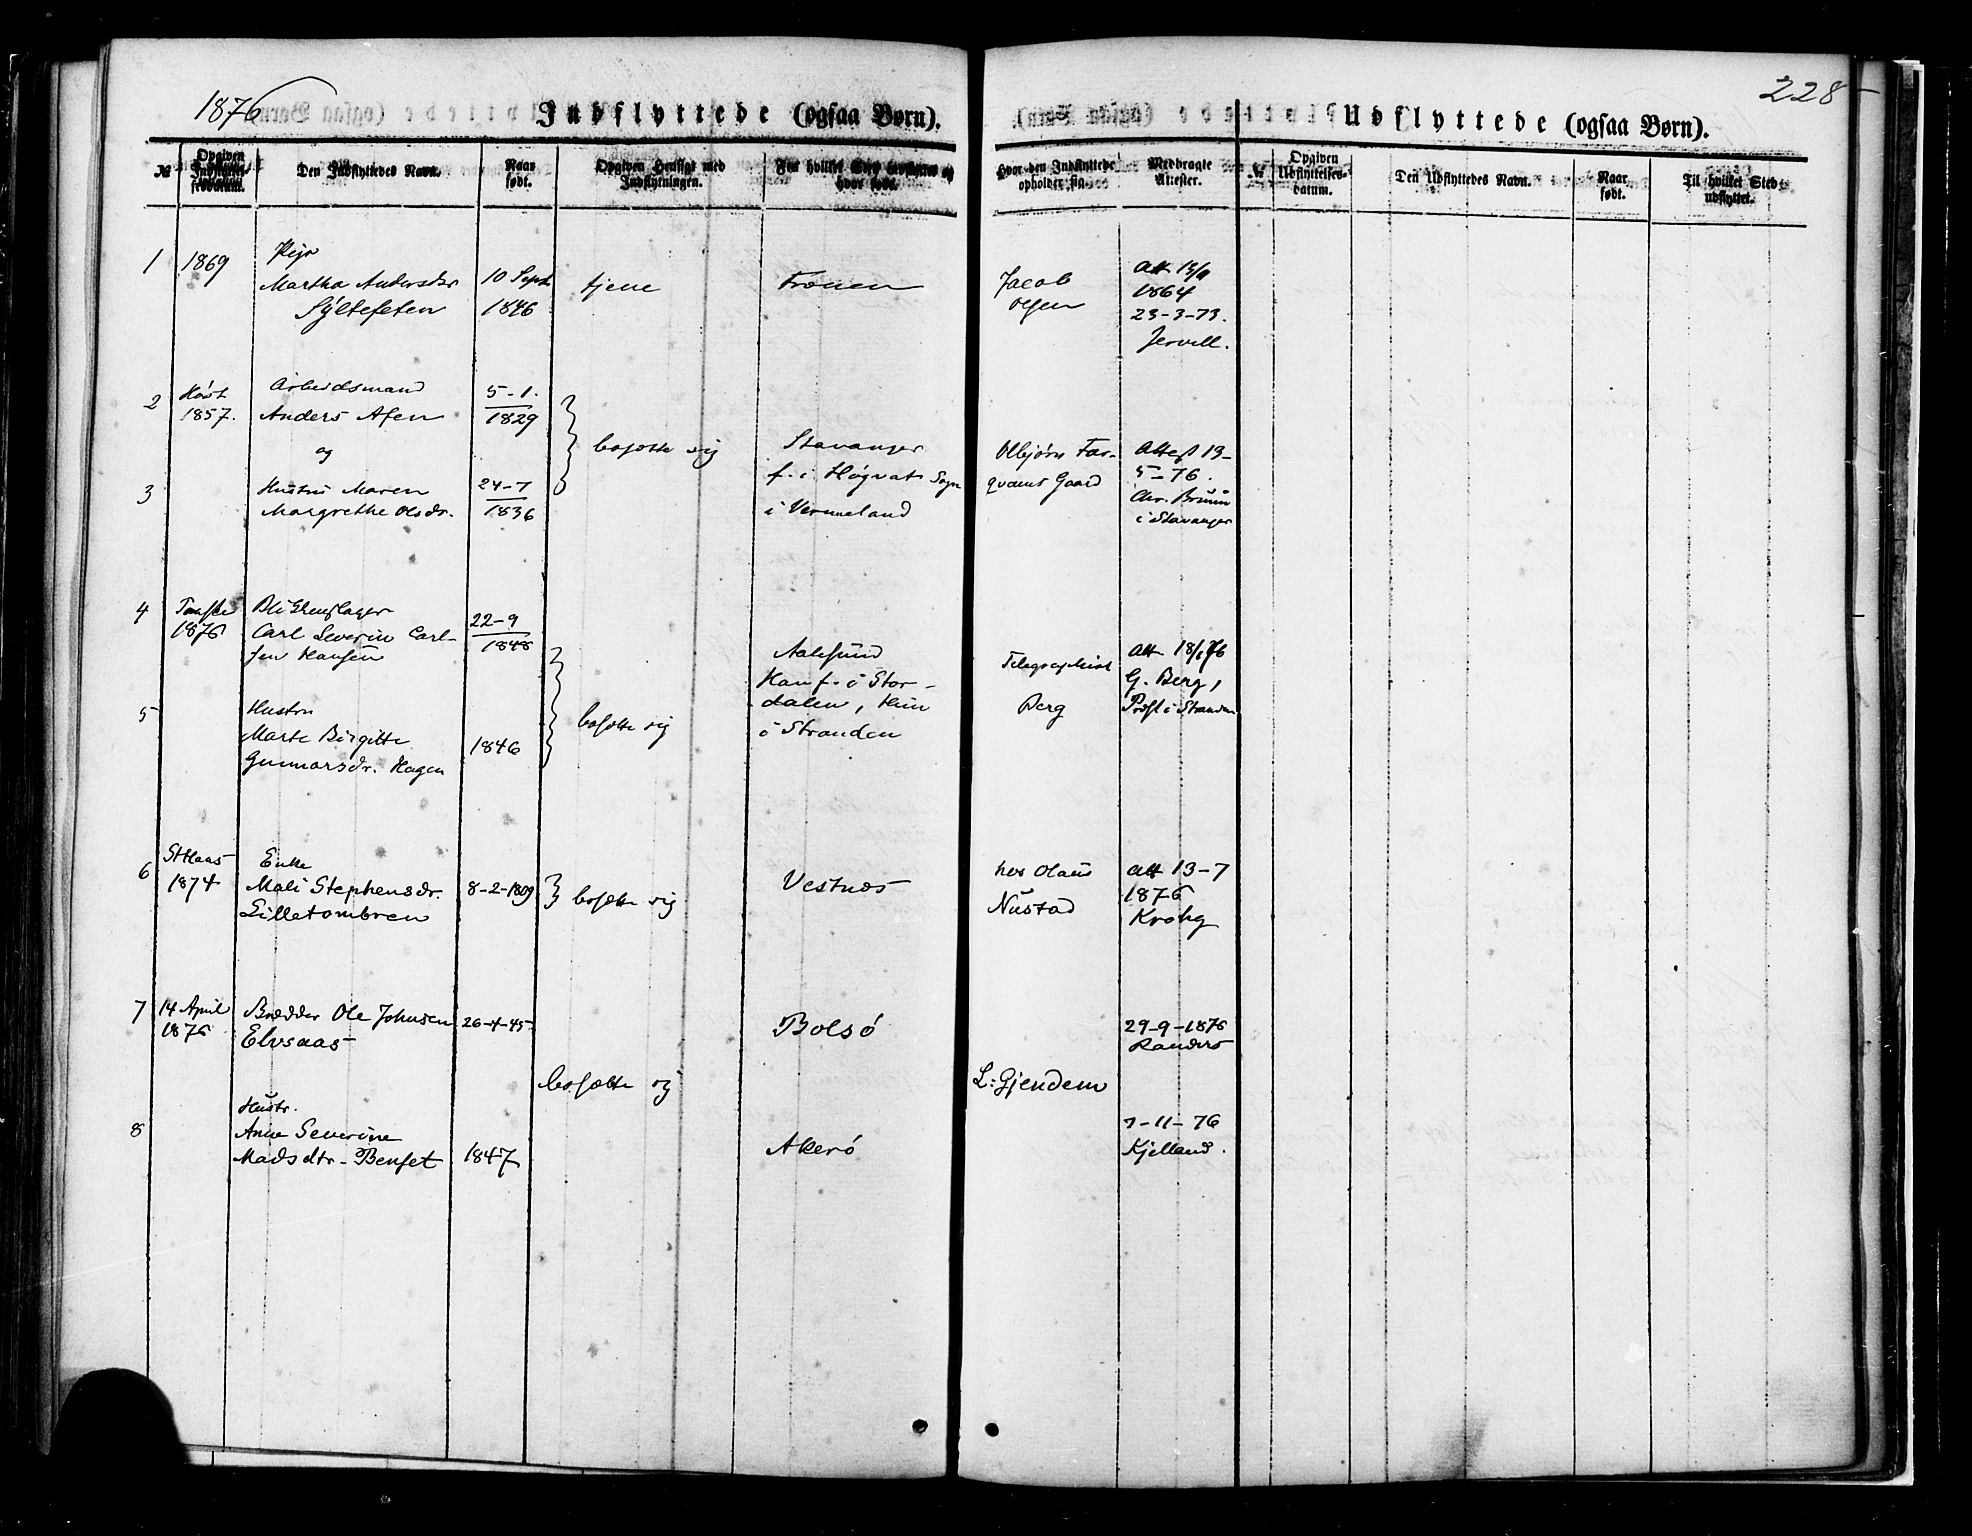 1876
228
Indflyttede (ogsaa Børn).
Udflyttede (ogsaa Børn).
№
Opgiven Indflyttelsesdatum.
Den Indflyttedes Navn.
Naar født.
Opgiven Hensigt med Indflytningen.
Fra hvilket Sted indflyttet og hvor født.
Hvor den Indflyttede opholder sig.
Medbragte Attester.
№
Opgiven Udflyttelsesdatum.
Den Udflyttedes Navn.
Naar født.
Til hvilket Sted udflyttet.
1
1869
Pige
Martha Andersdtr
Sylteseten
10 Sept
1846
tjene
Frænen
Jacob
Olsen
Att
1864
23-3-73.
Jervell.
2
Høst
1857.
Arbeidsmand
Anders Afen
og
5-1.
1829
3
Hustru Maren
Margrethe Olsdr.
24-7
1836
bosætte sig
Stavanger
f. i Høgvat Sogn
i Vermeland
Olbjørn Far-
qvams Gaard
Attest 13-
5-76.
Chr. Bruun
i Stavanger
4
1876
Blikkenslager
Carl Severin Carl-
sen Hansen
22-9
1848
5
Hustru
Marte Birgitte
Gunnarsdr. Hagen
1846
bosætte sig
Aalesund
Han f. i Stor-
dalen, Hun
i Stranden
Telegraphist
Berg
Att 18/1 76
G. Berg,
Provst i Stranden
6
StHaas
1874
Enke
Mali Stephensdr.
Lilletombren
8-2-1809
bosætte sig
Vestnæs
hos Olaus
Nustad
Att 13-7
1876
Krohg
7
14 April
1876
Bredder Ole Johnsen
Elvsaas
26-4-45
Bolsø
29-9-1876
Randers
bosætte sig
L. Gjendem
8
Hustr.
Anne Severine
Madsdtr. Benset
1847
Akerø
7-11-76
Kjelland.